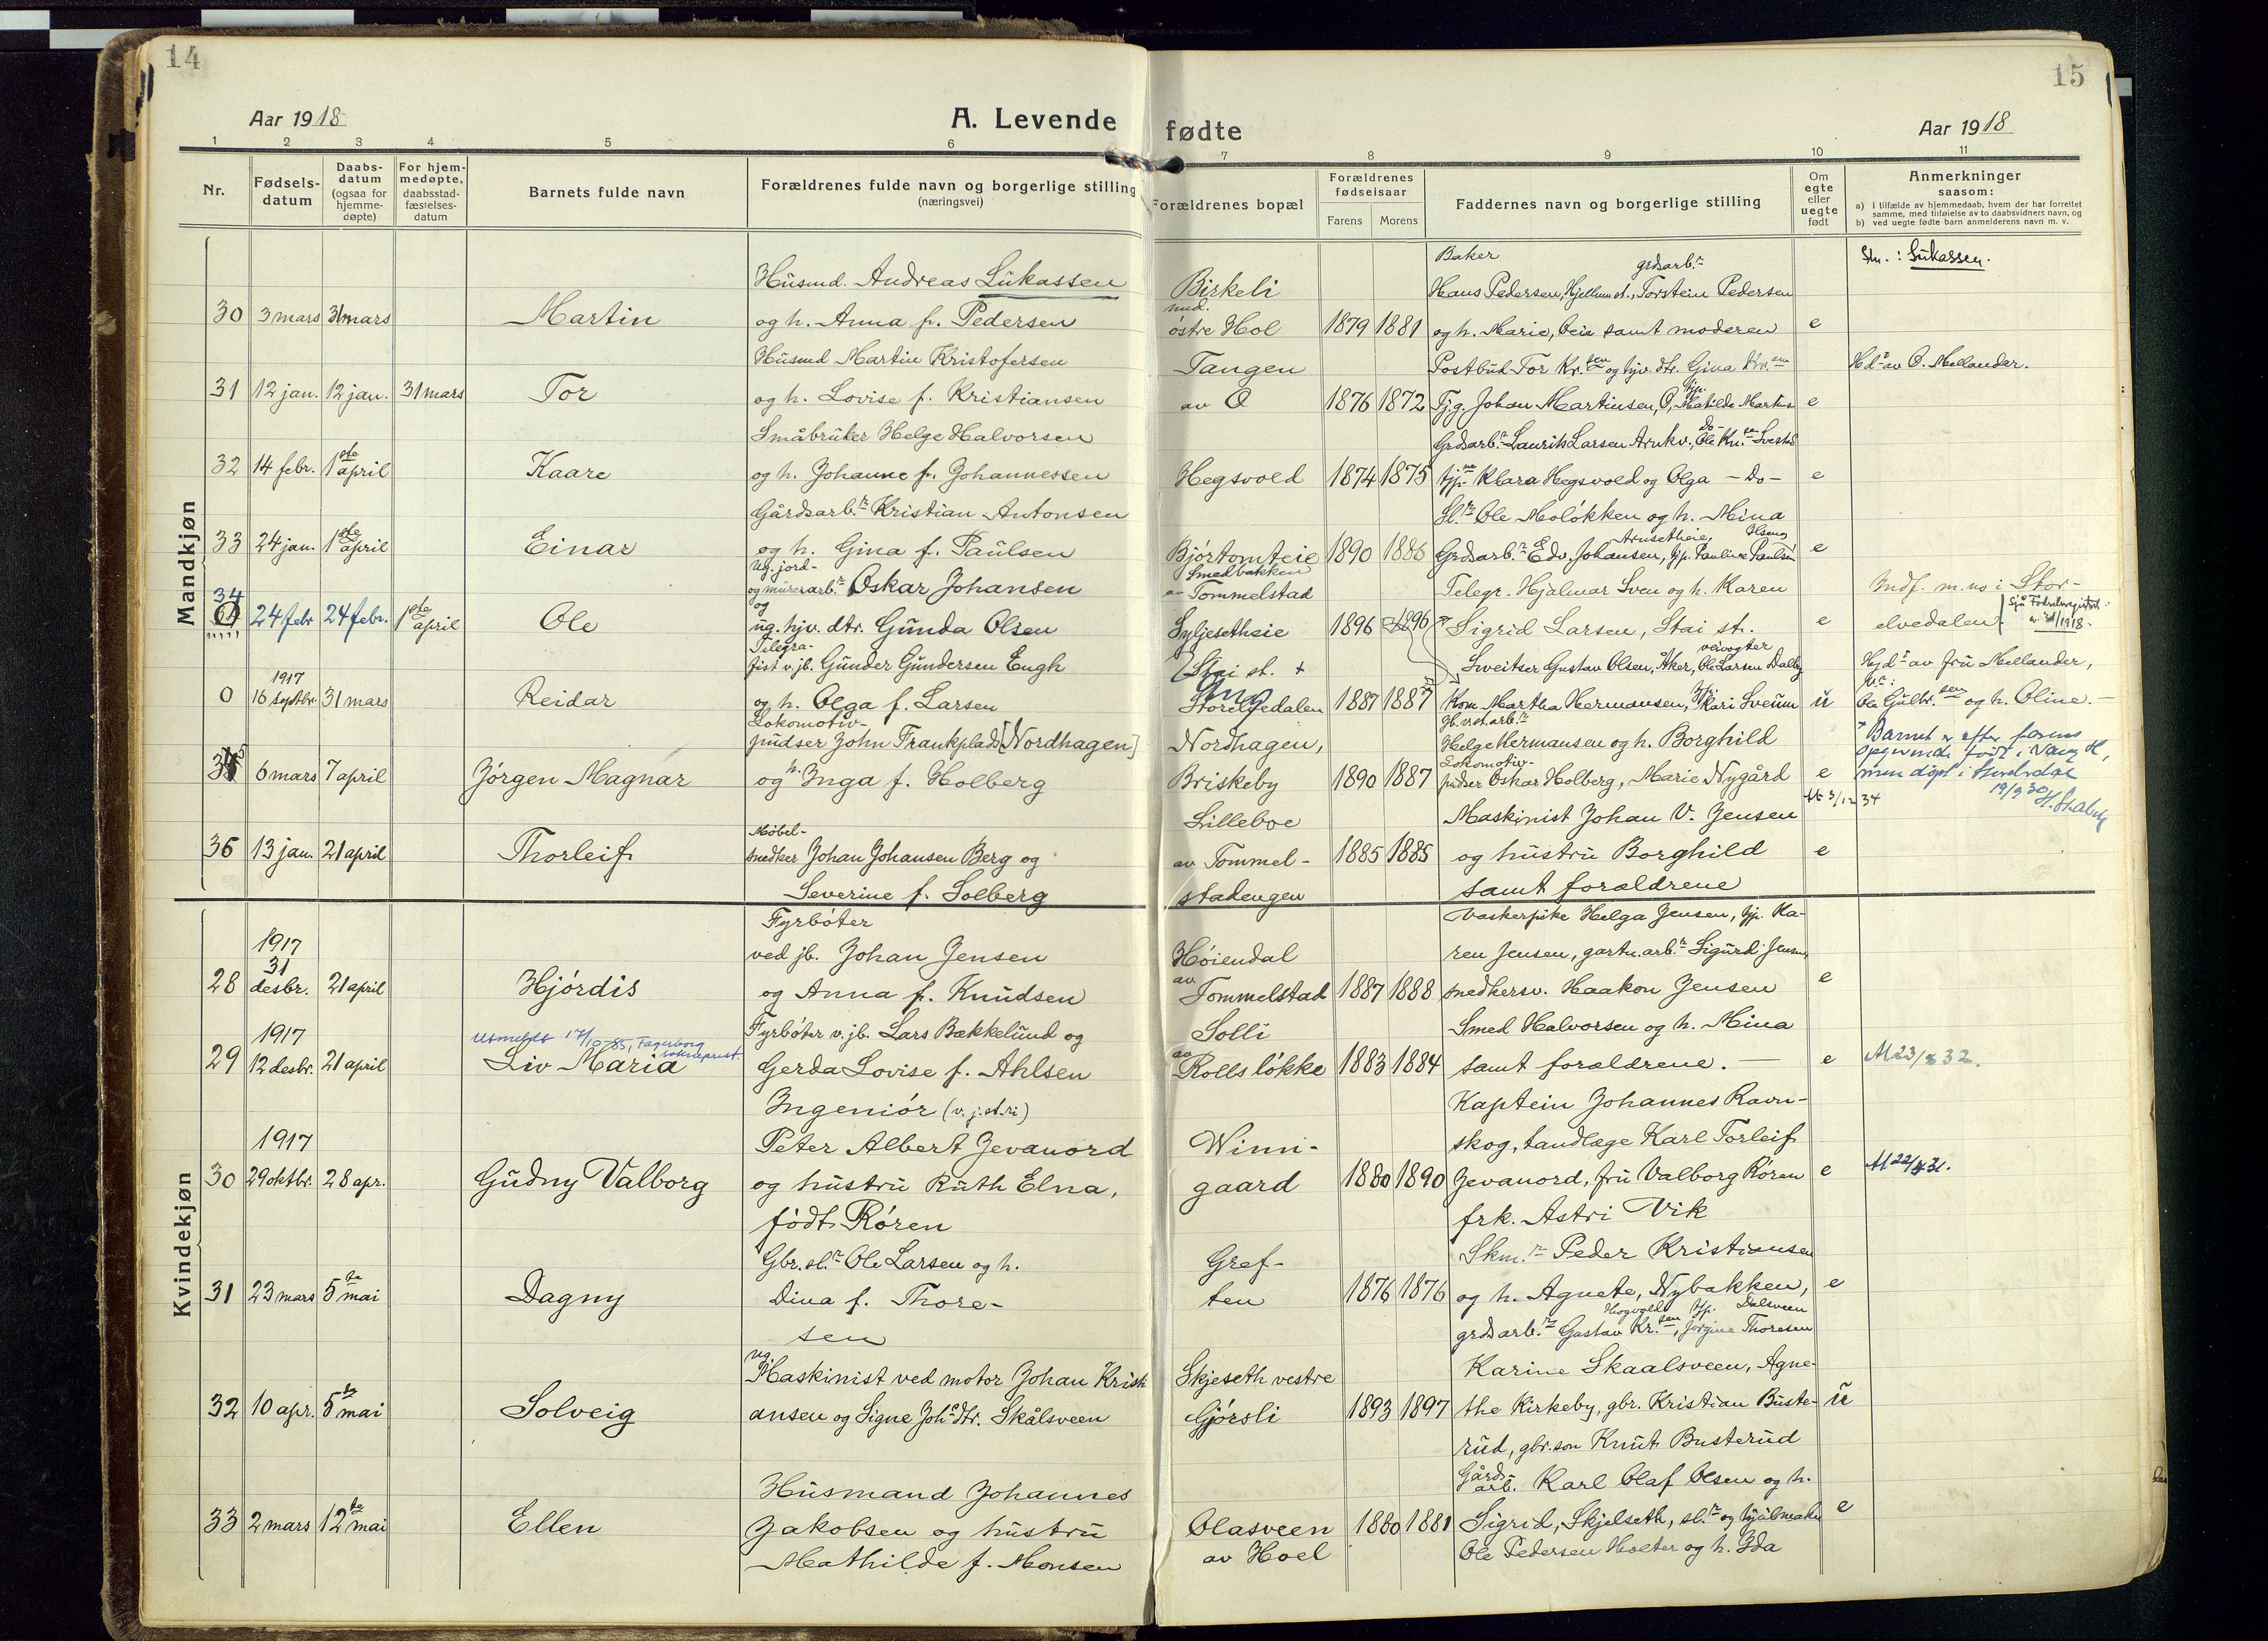 14
15
Aar 1918
A. Levende fødte
Aar 1918
1 2 3 4 5 6 7 8 9 10 11
Nr.
Fødsels-
datum
Daabs-
datum
(ogsaa for
hjemme-
døpte)
For hjem-
medøpte,
daabsstad-
fæstelses-
datum
Barnets fulde navn
Forældrenes fulde navn og borgerlige stilling
(næringsvei)
Forældrenes bopæl
Forældrenes
fødselsaar
Farens Morens
Faddernes navn og borgerlige stilling
Om
egte
eller
uegte
født
Anmerkninger
saasom:
a) i tilfælde av hjemmedaab, hvem der har forrettet
samme, med tilføielse av to daabsvidners navn, og
b) ved uegte fødte barn anmelderens navn m. v.
Mandkjøn
30 3 mars 31 mars
Martin
Husmd. Andreas Lukassen
og h. Anna f. Pedersen
Birkeli
østre Hol
1879 1881
Baker
grdsarb.r
Hans Pedersen, Hjellum st., Torstein Pedersen
og h. Marie, Oeie samt moderen
e
Stn.: Lukassen.
31 12 jan. 12 jan. 31 mars
Tor
Husmd Martin Kristofersen
og h. Lovise f. Kristiansen
Tangen
av O
1876 1872
Postbud Tor Kr.sen og hjv. dtr. Gina Kr.sen
Tj.g. Johan Martinsen, O, Matilde Martins
e
Hd. av O. Mellander.
32 14 febr. 1ste april
Kaare
Småbruker Helge Halvorsen
og h. Johanne f. Johannessen
Hegsvold
1874 1875
Grdsarb.r Laurits Larsen Arnkv., Do- Ole Kn.sen
tjp. Klara Hegsvold og Olga -Do-
e
33 24 jan. 1ste april
Einar
Gårdsarb.r Kristian Antonsen
og h. Gina f. Paulsen
Bjórtomteie
1890 1886
Sl.r Ole Molókken og h. Mina
Grdsarb.r Edv. Johansen, tjp. Pauline Paulsen
e
34 24 febr 24 febr. 1ste april
Ole
Ug. jord-
og murerarb.r Oskar Johansen
og
ug. hjv. dtr. Gunda Olsen
Smedbakken
av Tommelstad
Syljesetheie
1896 1896
Telegr. Hjalmar Sven og h. Karen
Sigrid Larsen, Stai st.
e
Indf. m. no i Stor-
elvedalen.
0 1917 16 septbr. 31 mars
Reidar
Telegra-
fist v. jb. Gunder Gundersen Engh
og h. Olga f. Larsen
Stai st. +
Storelvedalen
1887 1887
veivogter
Sveitser Gustav Olsen, Åker, Ole Larsen Dalby
Kom. Martha Hermansen, tjp. Kari Sveum
u
Hjd. av fru Mellander,
Ole Gulbr.sen og h. Oline.-
35 6 mars 7 april
Jórgen Magnar
Lokomotiv-
pudser John Frankplads [Nordhagen]
og h. Inga f. Holberg
Nordhagen,
Briskeby
1890 1887
H.v.st.arb.r
Helge Hermansen og h. Borghild
Lokomotiv-
pudser Oskar Holberg, Marie Nygård
e
+ Barnet er efter farens
opgivende født i Vang H,
men døpt i
19/9 30
Att 3/12 34
36 13 jan. 21 april
Thorleif
Møbel-
snedker Johan Johansen Berg og
Severine f. Solberg
Lilleboe
av Tommel-
stadengen
1885 1885
Maskinist Johan V. Jensen
og hustru Borghild
samt forældrene
e
Kvindekjøn
28 1917 31 desbr. 21 april
Hjórdis
Fyrbóter
ved jb. Johan Jensen
og Anna f. Knudsen
Hóiendal
av
Tommelstad
1887 1888
Vaskerpike Helga Jensen, tjp. Ka-
ren Jensen, gartn.arb.r Sigurd Jensen,
snedkersv. Haakon Jensen
e
29 1917 12 desbr. 21 april
Utmeldt 17/10-85, Fagerborg
sokneprest.
Liv Maria
Fyrbóter v. jb. Lars Bækkelund og
Gerda Lovise f. Ahlsen
Solli
av
Rollsløkke
1883 1884
Smed Halvorsen og h. Mina
samt forældrene. —
e
Att 23/8 32.
30 1917 29 oktbr. 28 apr.
Gudny Valborg
Ingeniór (v. j.st.ri)
Peter Albert Jevanord
og hustru Ruth Elna,
fódt Róren
Winni-
gaard
1880 1890
Kaptein Johannes Ravn-
skog, tandlæge Karl Torleif
Jevanord, fru Valborg Róren
frk. Astri Vik
e
Att 22/8 31.
31 23 mars 5te mai
Dagny
Gbr. sl.r Ole Larsen og h.
Dina f. Thore-
sen
Gref-
ten
1876 1876
Skm.r Peder Kristiansen
og h. Agnete, Nybakken,
Hogvold tjp. Dalsveen
grdsarb.r Gustav Kr.sen, Jórgine Thoresen
e
32 10 apr. 5te mai
Solveig
Ug.
Maskinist ved motor Johan Kristi
ansen og Signe Joh.s dtr. Skålsveen
Skjeseth vestre
Gjórsli
1893 1897
Karine Skaalsveen, Agne-
the Kirkeby, gbr. Kristian Buste-
rud, gbr. son Knut Busterud
u
33 2 mars 12te mai
Ellen
Husmand Johannes
Jakobsen og hustru
Mathilde f. Monsen
Olasveen
av Hoel
1880 1881
Gårds-
arb. Karl Olaf Olsen og h.
Sigrid, Skjelseth, sl.r og hjulmaker
Ole Pedersen Holter og h. Ida
e